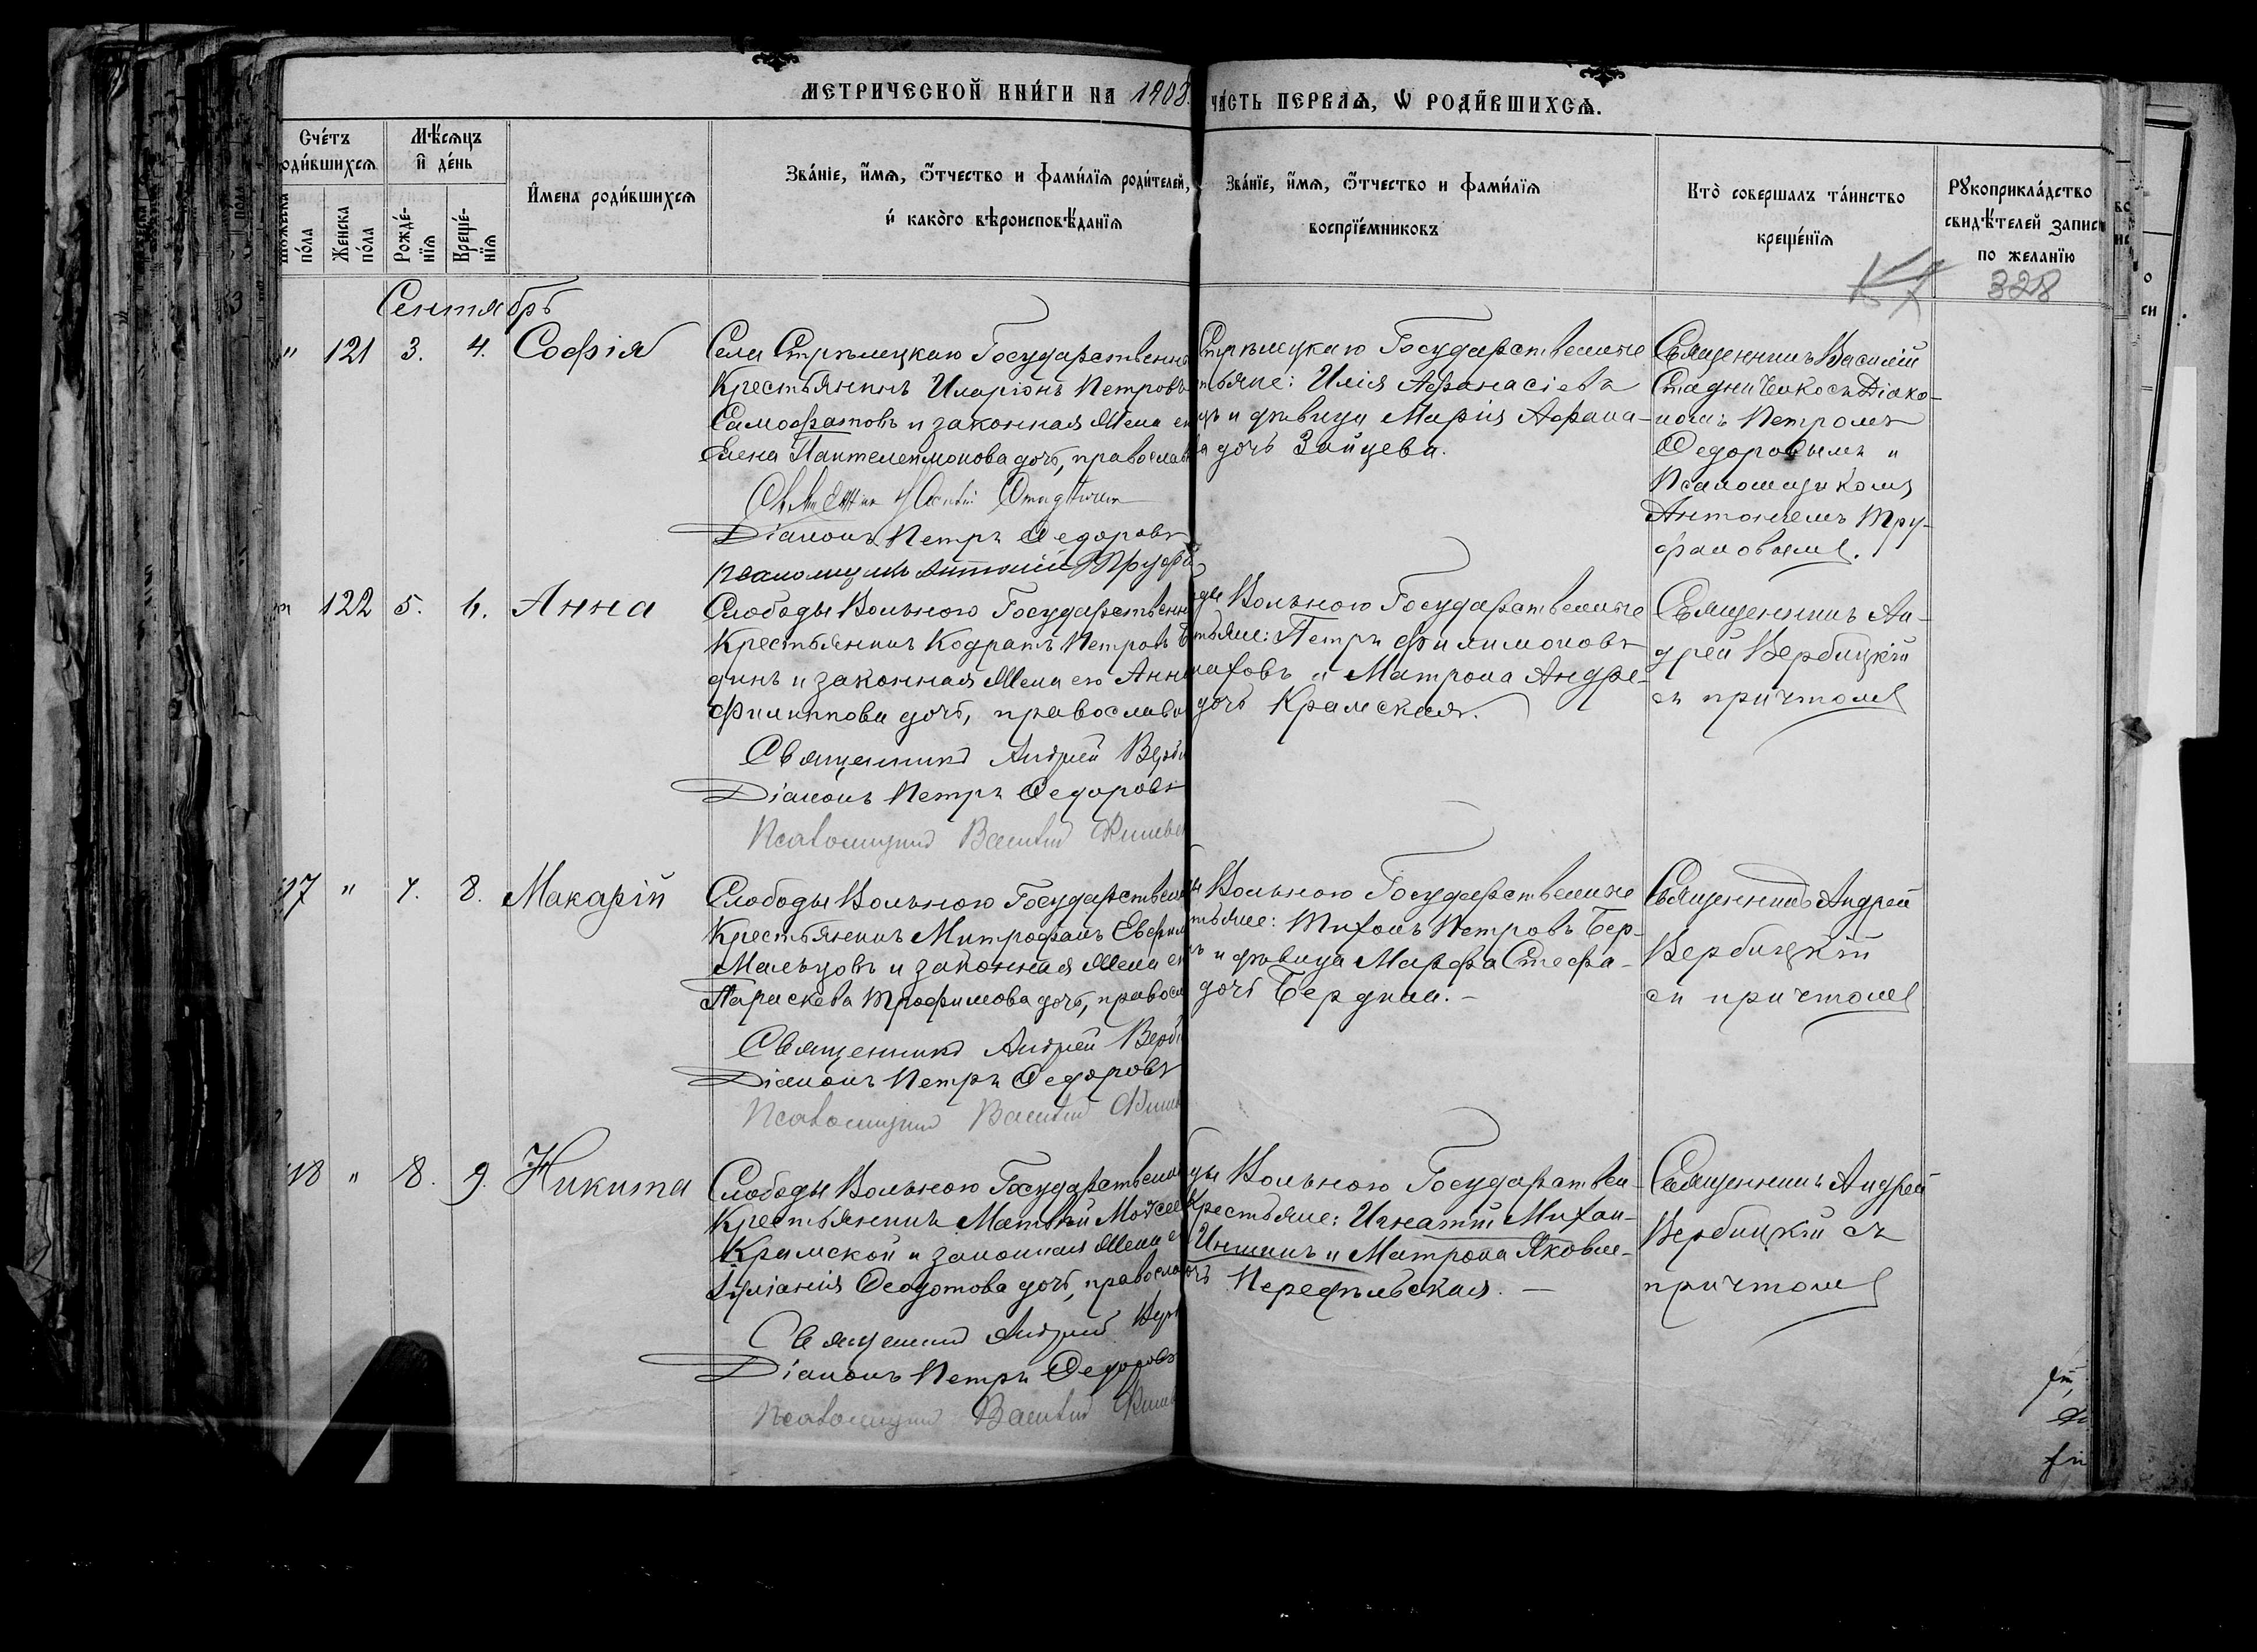 МЕТРИЧЕСКОЙ КНИ́ГИ НА 1903.
ЧА́СТЬ ПЕРВАѦ, Ѡ РОДИ́ВШИХСѦ.
Сче́тъ
роди́вшихсѧ
Мѣ́сѧцъ
и҆ де́нь
И҆мена роди́вшихсѧ
Зва́нїе, и҆́мѧ, ѻ҆́тчество и фами́лїѧ роди́телей,
и҆ како́го вѣроисповѣ́данїѧ
Мꙋжска по́ла
Женска по́ла
Рожде́нїѧ
Креще́нїѧ
Зва́нїе, и҆́мѧ, ѻ҆́тчество и фами́лїѧ
воспрїе́мниковъ
Кто̀ совершалъ та́инство
креще́нїѧ
Рꙋкоприкла́дство
свидѣ́телей записи
по желанїю
328
Сентябрь
" 121 3. 4. Софія
Села Стрѣлецкаго Государственны
Крестьянинъ Иларіонъ Петровъ
Самофатовъ и законная Жена ег
Елена Пантелеимонова дочь, православ
Діаконъ Петръ Ѳедоровъ
Псаломщикъ Антоній Труфа
Стрѣлецкаго Государственные
тьяне: Илія Аѳанасіевъ
цъ и дѣвица Марія Аѳана-
а дочь Зайцева.
Священникъ Василій
Стадниченко съ Діако-
номъ Петромъ
Ѳедоровымъ и
Псаломщикомъ
Антоніемъ Тру-
фановымъ.
122 5. 6. Анна
Слободы Вольного Государственн
Крестьянинъ Кодратъ Петровъ Б
динъ и законная Жена его Анна
Филиппова дочь, православн
Священникъ Андрей Верби
Діаконъ Петръ Ѳедоровъ
Псаломщикъ Василий
ды Вольного Государственные
тьяне: Петръ Филимоновъ
наховъ и Матрона Андре-
дочь Крамская.
Священникъ Ан-
дрей Вербицкій
съ причтомъ
117 " 7. 8. Макарій
Слободы Вольного Государствен
Крестьянинъ Митрофанъ Евфим
Мальцовъ и законная Жена ег
Параскева Трофимова дочь, правосл
Священникъ Андрей Верби
Діаконъ Петръ Ѳедоровъ
Псаломщикъ Василий
ы Вольного Государственные
тьяне: Тихонъ Петровъ Бер-
ъ и дѣвица Марфа Стефа-
дочь Бердина. -
Священникъ Андрей
Вербицкій
съ причтомъ
118 " 8. 9. Никита
Слободы Вольного Государственн
Крестьянинъ Матвѣй Моѵсее
Крамской и законная Жена ег
Іуліанія Ѳеодотова дочь, правосла
Священникъ Андрей Верб
Діаконъ Петръ Ѳедоровъ
Псаломщикъ Василий
ды Вольного Государствен-
Крестьяне: Игнатій Михаи-
Иншинъ и Матрона Яковле-
очь Передѣльская. —
Священникъ Андрей
Вербицкій съ
причтомъ